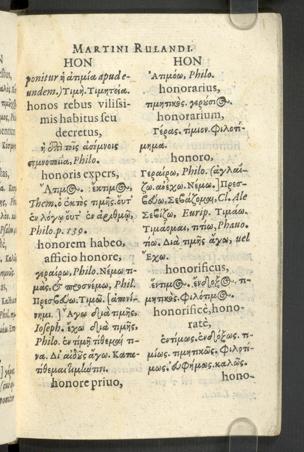 MARTINI RULANDI.
HON
ponitur ἡ ἀτιμία apud e-
undem.) Τιμή. Τιμητεία.
honos rebus vilissi-
mis habitus seu
decretus,
Philo.
honoris expers,
Ἄτιμος. ἐκτιμος,
Them. ὁ ἐκτὸς τιμῆς. οὐτ
ἐν λόγῳ οὐτ ἐν ἀριθμῷ,
Philo. p. 730.
honorem habeo,
afficio honore,
γεραίρω, Philo. Νέμω τι-
μάς. & ἀπονέμω, Phil.
Πρεσβεύω. Τιμῶ. [ἀπονέ-
νημι.] Ἄγω διὰ τιμῆς,
Ioseph. ἔχω διὰ τιμῆς,
Philo. ἐν τιμῇ τίθεμαί τι-
να. Δι' αἰδοῦς ἄγω. Κατα-
τίθεμαι
honore priuo,
HON
Ἀτιμόω, Philo.
honorarius,
τιμητικός. γερούσιος.
honorarium,
Γέρας. τίμιον. Φιλοτί-
μημα.
honoro,
Γεραίρω, Philo. (ἀγλαΐ-
ζω. ἀνέχω. Νέμω.) Πρεσ-
βεύω. Σεβάζομαι, Cl. Ale
Σεβίζω, Eurip. Τιμάω.
Τιμάομαι, Phauo-
Διὰ τιμῆς ἄγω, uel
Ἔχω.
honorificus,
ἔντιμος. ἔνδοξος. τι-
μητικός. Φιλότιμος.
honorificè, hono-
ratè,
ἐντίμως. ἐνδόξως. τι-
μίως. τιμητικῶς. Φιλοτί-
μως. εὐφήμως. καλῶς.
hono-